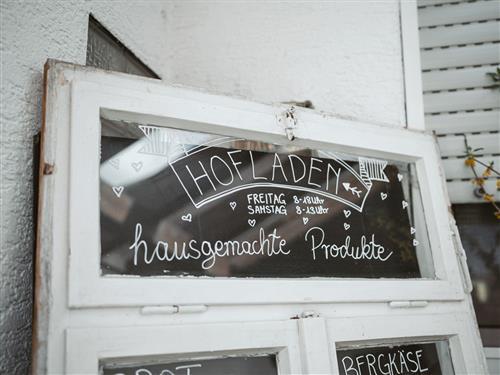 HOFLADEN
FREITAG 8-18 Uhr
SAMSTAG 8-13 Uhr
hausgemachte Produkte
BERGKÄSE